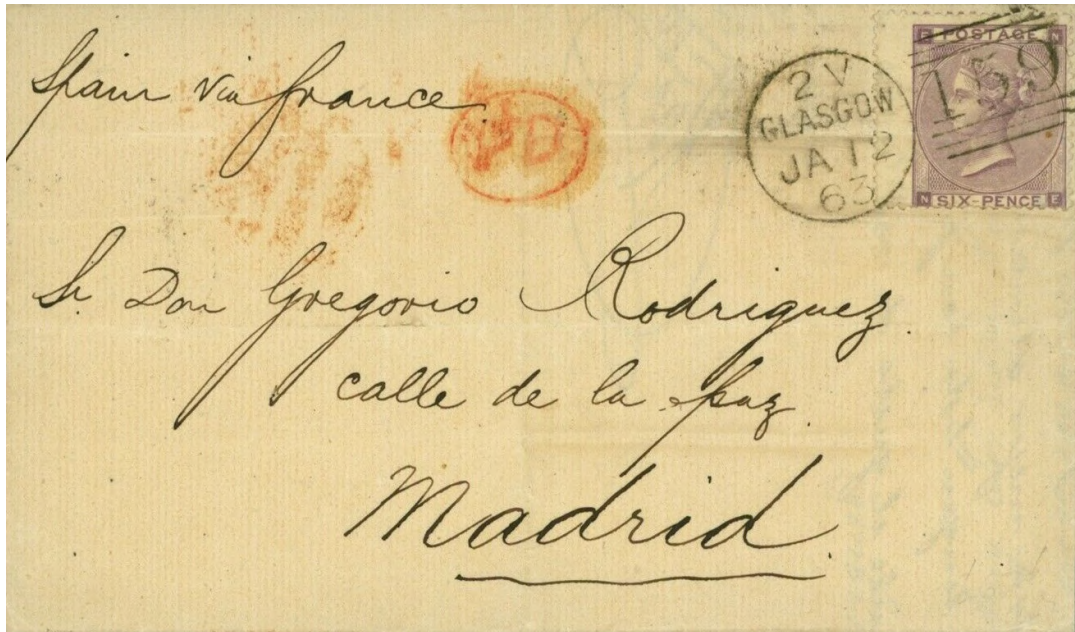 Spain via France
PD
2 V
GLASGOW
JA 12
63
159
E POSTAGE N
N SIX-PENCE E
Sr. Don Gregorio Rodriguez.
calle de la Paz
Madrid.